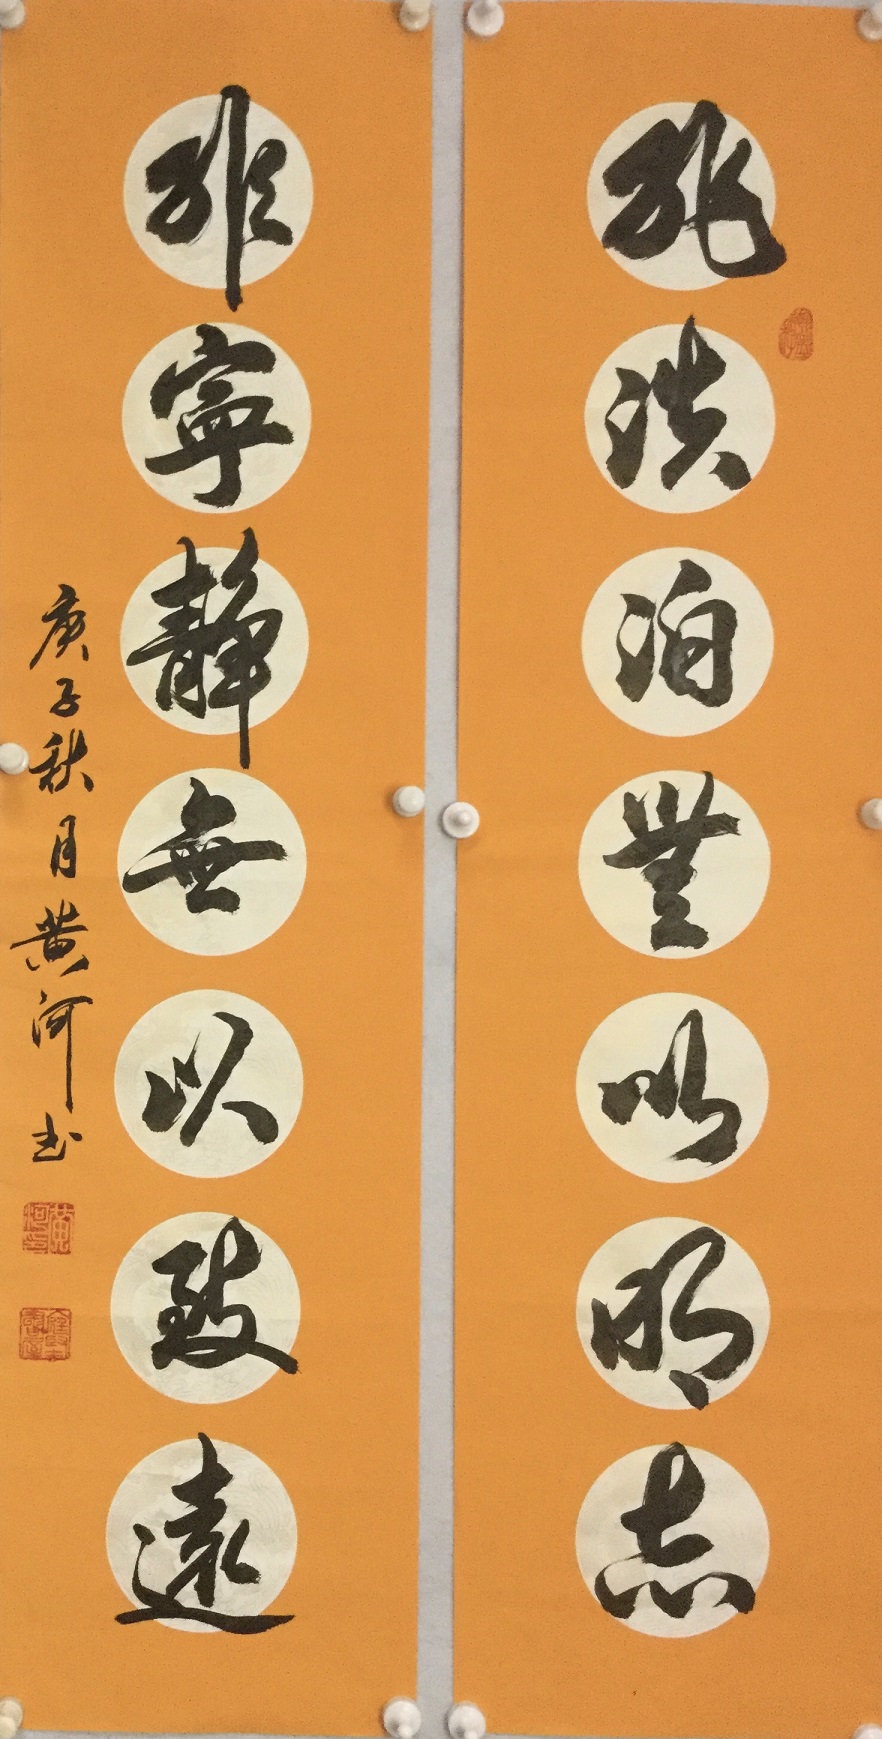 非淡泊無以明志
非寧靜無以致遠
庚子秋月黄河书